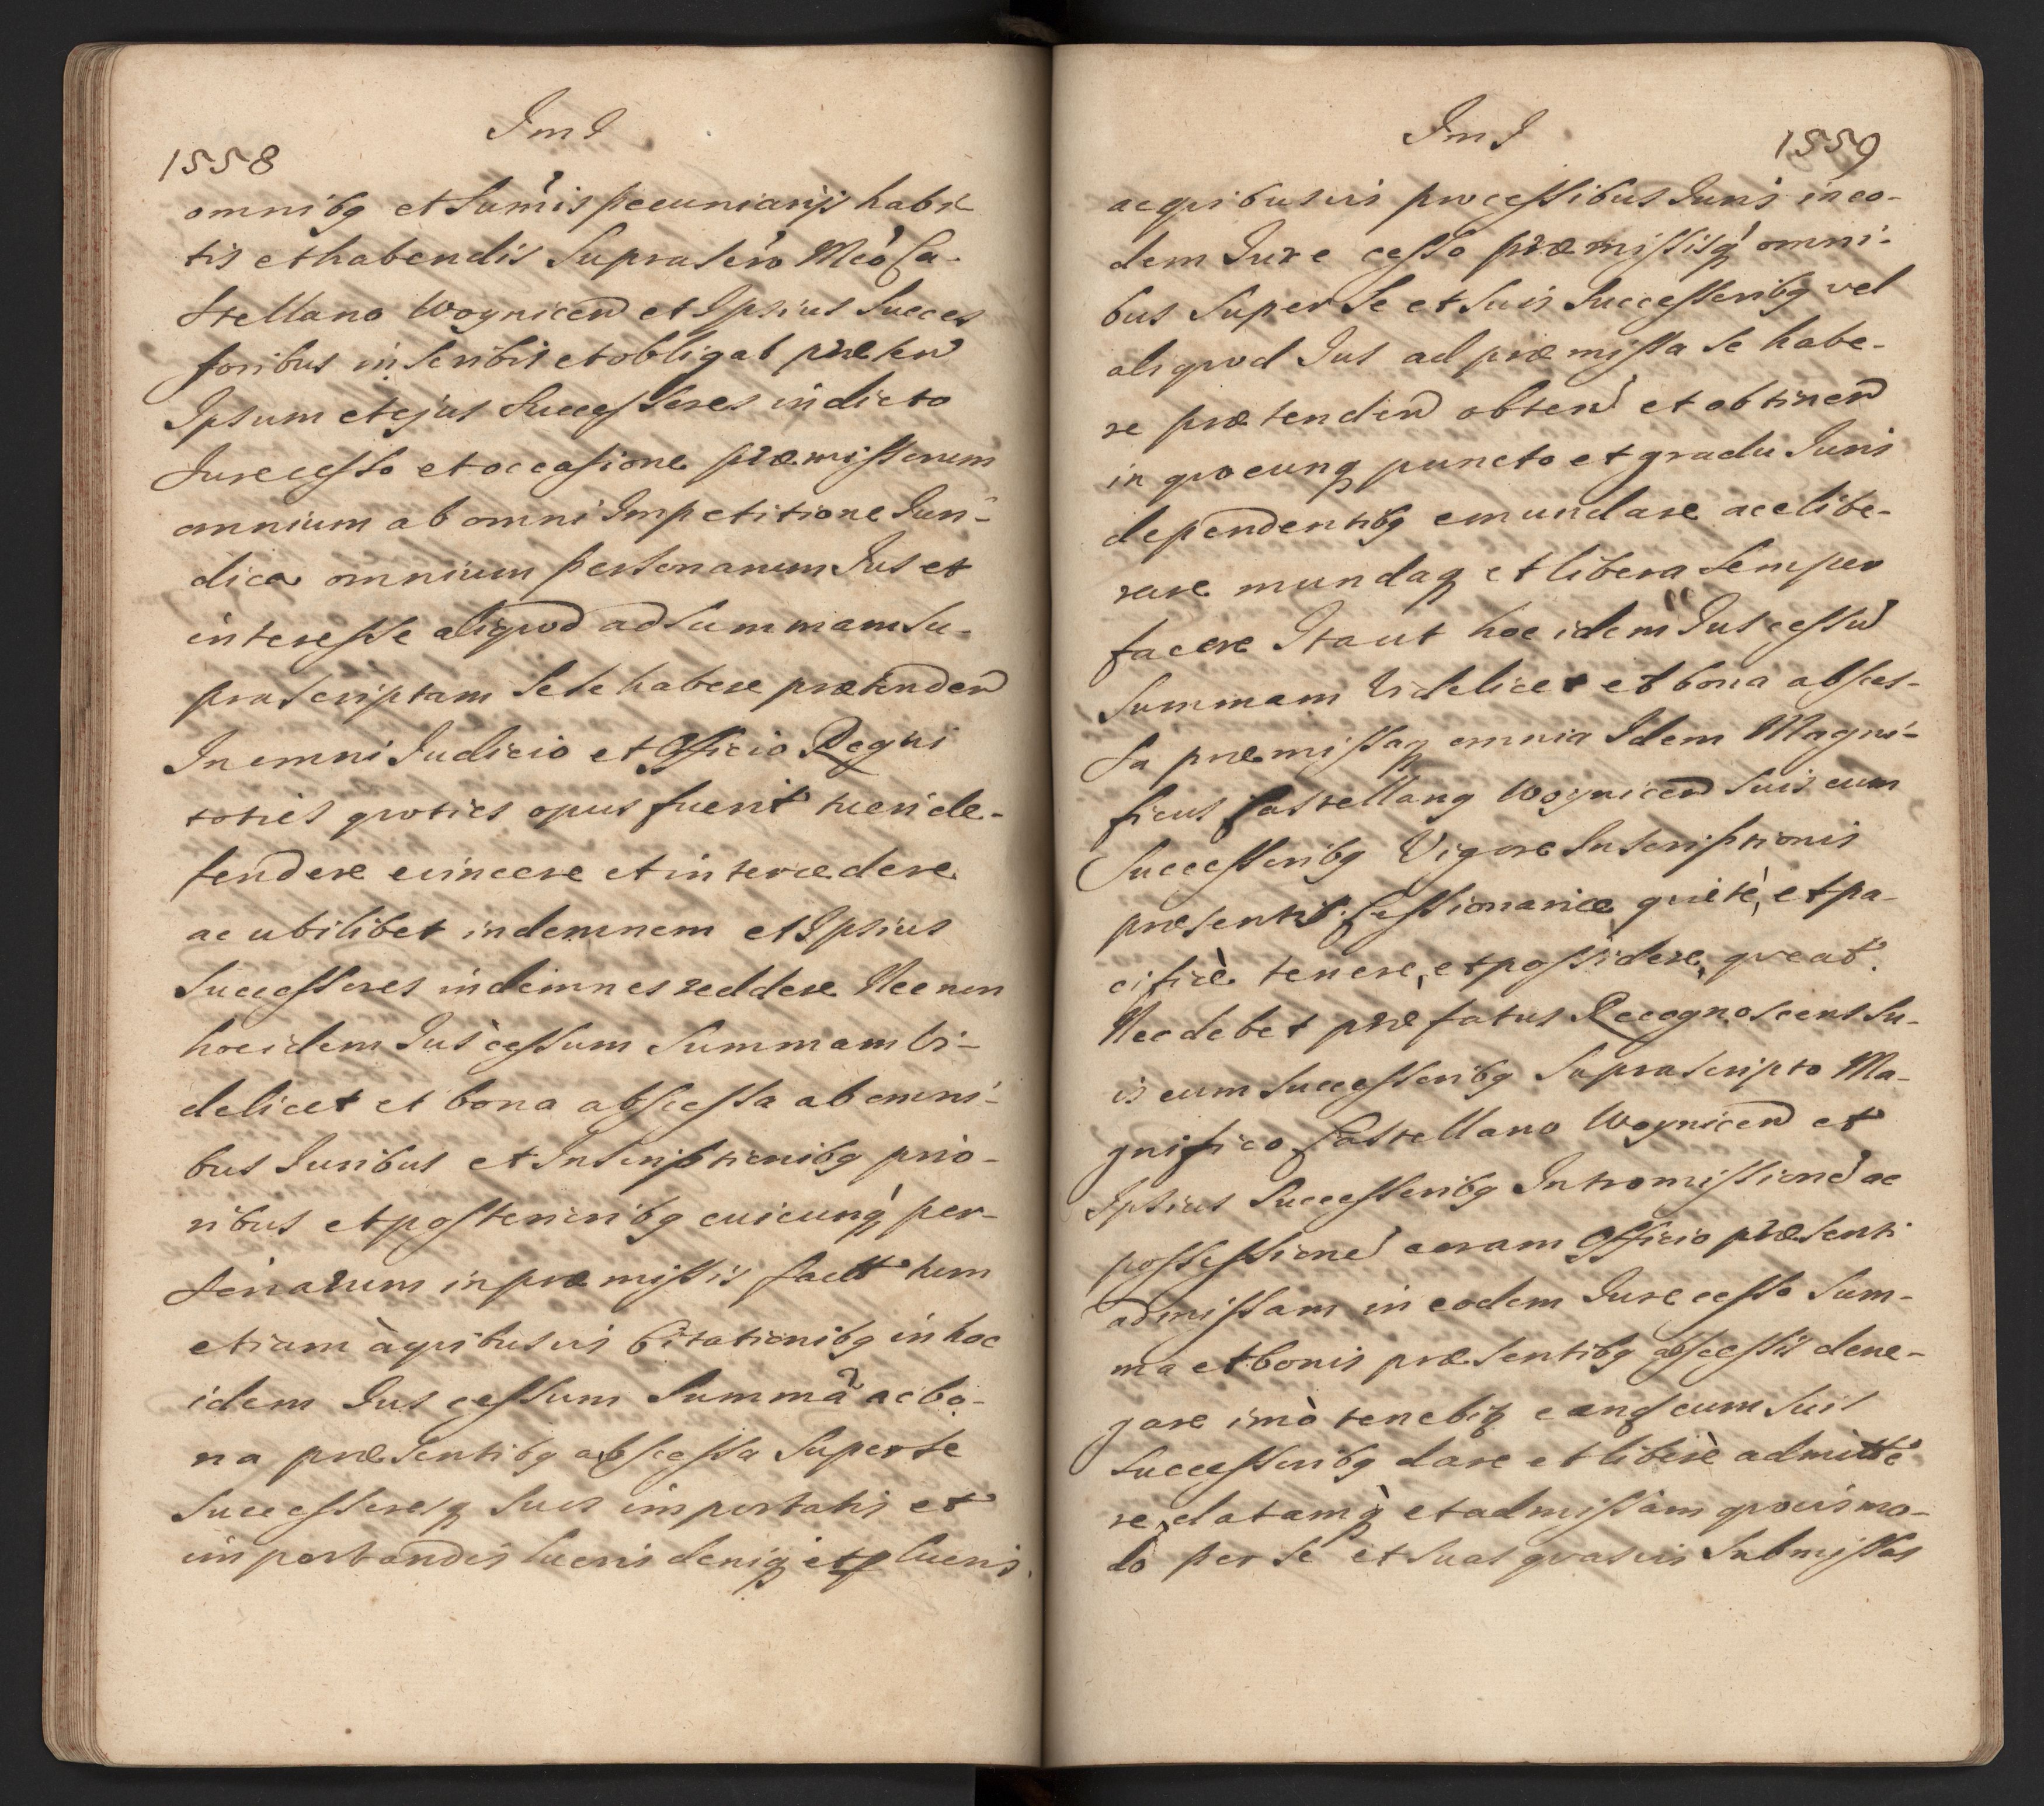 Im J
1558
omnibq et Sum̃is pecuniarijs habi-
tis et habendis Suprascr̃o Mco Ca-
stellano Woynicen et Ipsius Succes
soribus inscribit et obligat præten
Ipsum et ejus Successores in dicto
Jure cesso et occasione præmissorum
omnium ab omni Impetitione Juri-
dica omnium personarum Jus et
interesse aliqvod ad Summam Su-
prascriptam sese habere prætenden
In omni Judicio et Officio Regni
toties qvoties opus fuerit tueri de-
fendere evincere et intercedere
ac ubilibet indemnem et Ipsius
Successores indemnes reddere Nec non
hoc idem Jus cessum Summam Vi-
delicet et bona abscessa ab omni-
bus Juribus et Inscriptionibq prio-
ribus et posterioribq cuicunq per-
sonarum in præmissis factt tum
etiam à qvibusvis Citationibq in hoc
idem Jus cessum Summã ac bo-
na præsentibq abscessa Super se
Successoresq suos importatis et
importandis lucris deniq et p lucris
Im J
1559
ac qvibusvis processibus Juris in eo-
dem Jure cesso præmissisq omni-
bus Super Se et Suis Successoribq vel
aliqvod Jus ad præmissa Se habe-
re prætenden obten et obtinen
in qvocunq puncto et gradu Juris
dependentibq emundare ac elibe-
rare mundaq et libera Semper
facere Ita ut hoc idem Jus cessũ
Summam Videlicet et bona absces-
sa præmissaq omnia Idem Magni-
ficus Castellanq Woynicen Suis cum
Successoribq Vigore Inscriptionis
præsentis Cessionariæ qvietè, et pa-
cificè tenere, et possidere, qveat.
Nec debet præfatus Recognoscens Su-
is cum Successoribq Suprascripto Ma-
gnifico Castellano Woynicen et
Ipsius Successoribq Intromissionẽ ac
possessionẽ coram Officio præsenti
admissam in eodem Jure cesso Sum-
ma et bonis præsentibq abscessis dene-
gare imò tenebiq eanq cum Suis
Successoribq dare et liberè admitte
re, datamq et admissam qvovis mo-
do per Se et Suas qvasvis Submissas